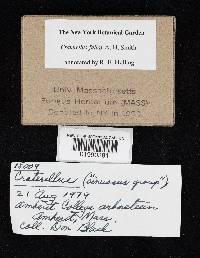 The New York Botanical Garden
Craterellus fallax A. H. Smith
annotated by R. E. Halling
Univ. Massachusetts
Fungus Herbarium (MASS)
Donated to NY in
Craterellus ("sinuosus group")
21 Aug 1979
Amherst College arboretum
Amherst, Mass.
coll. Don Black